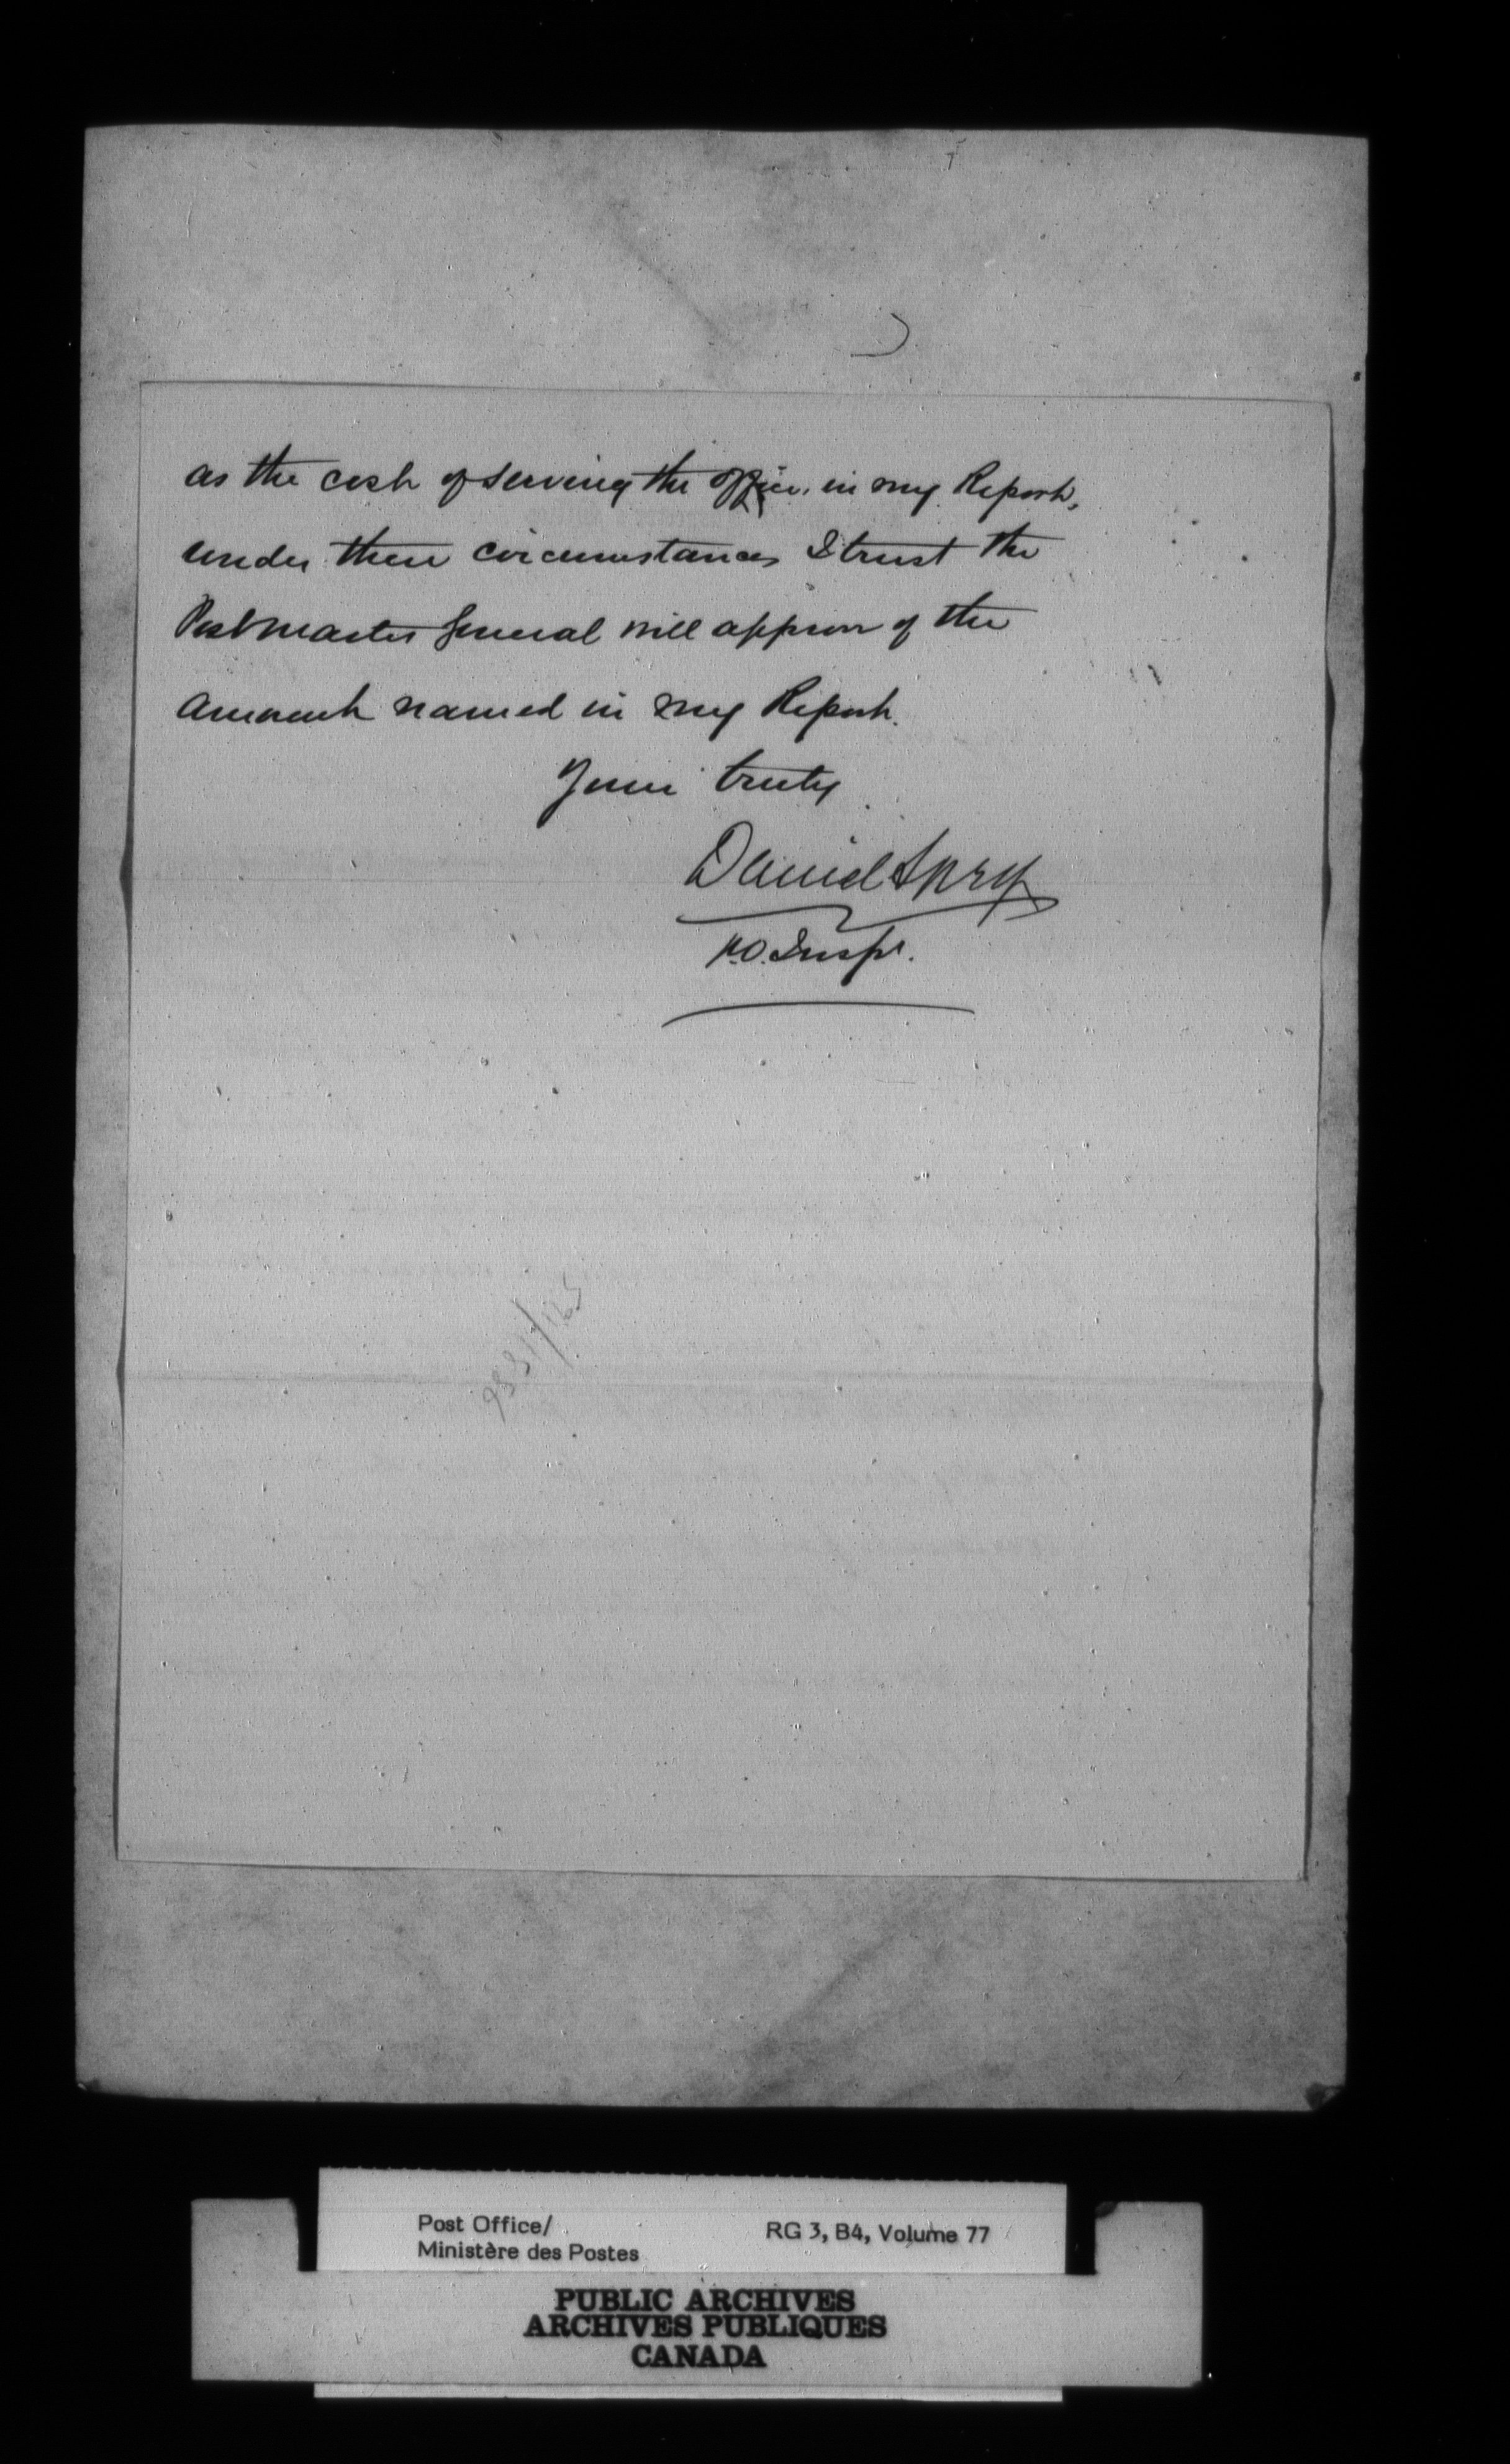 as the cost of serving the Office, in my Report,
under these circumstances I trust the
Postmaster General will approve of the
amount named in my Report.
Yours truly
Daniel Spry
P.O. Inspr.
Post Office/
Ministère des Postes
RG 3, B4, Volume 77
PUBLIC ARCHIVES
ARCHIVES PUBLIQUES
CANADA